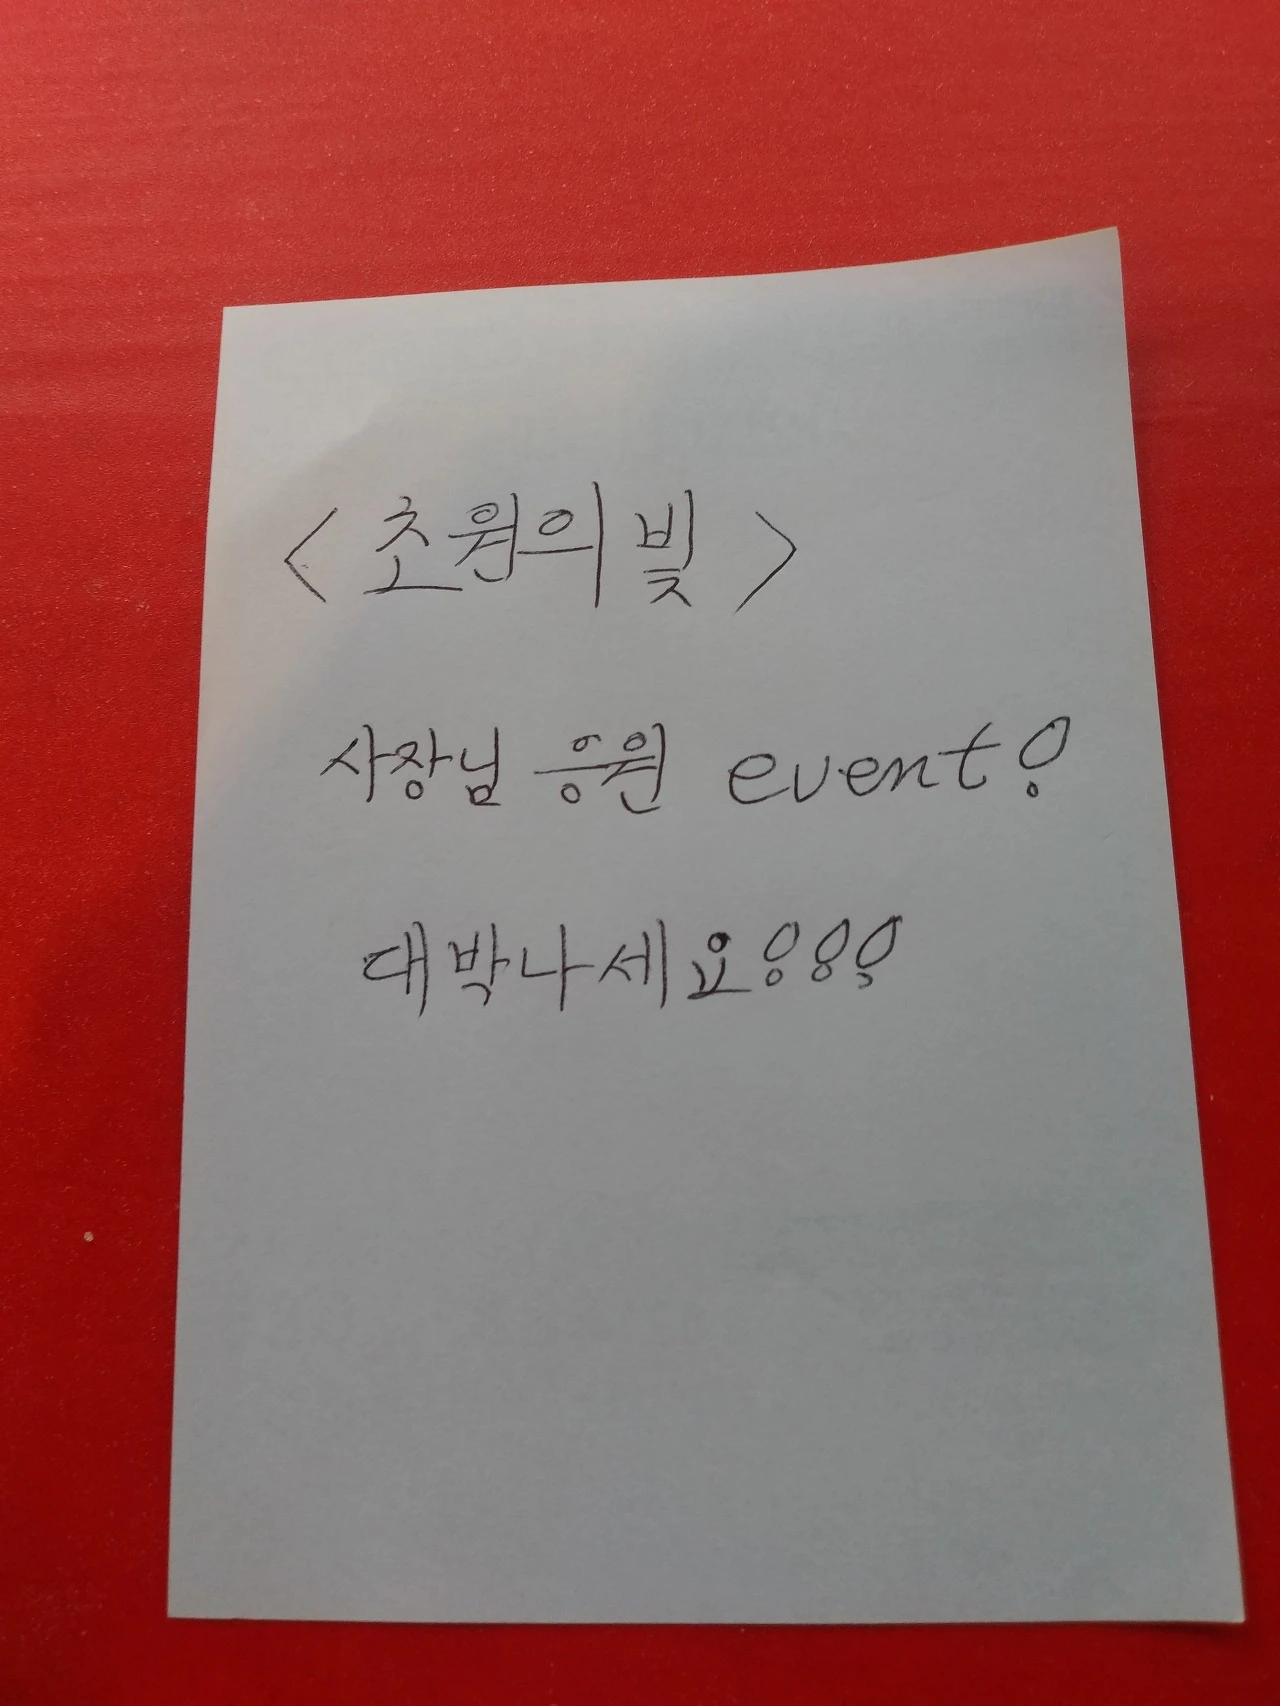 <초원의 빛>
사장님 응원 event!
대박나세요!!!